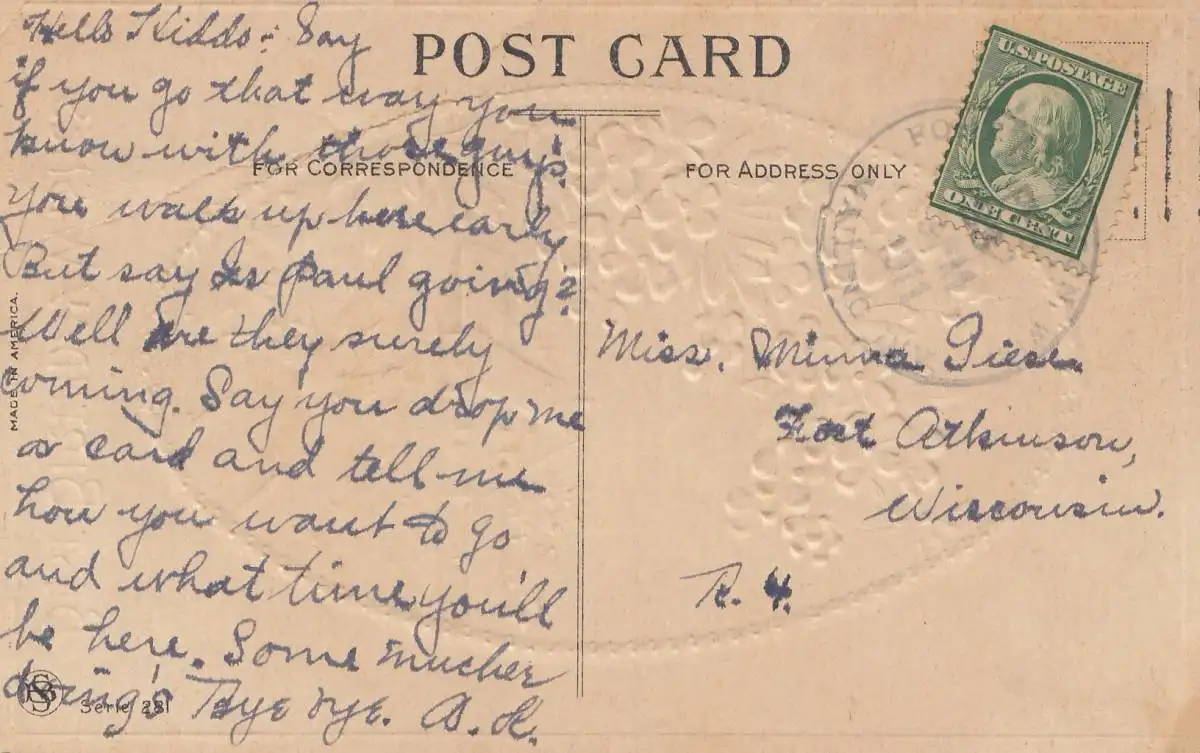 POST CARD
Hello Kiddo:- Say
if you go that way you
know with those guys.
You walk up here early
But say Is Paul going?
Well Are they surely
coming. Say you drop me
a card and tell me
how you want to go
and what time you'll
be here. Some mucher
doing's Bye Bye. A. K.
FOR CORRESPONDENCE
MADE IN AMERICA.
Serie 281
FOR ADDRESS ONLY
U.S. POSTAGE
ONE CENT
Miss. Minna Giese.
Fort Atkinson,
Wisconsin.
R. 4.